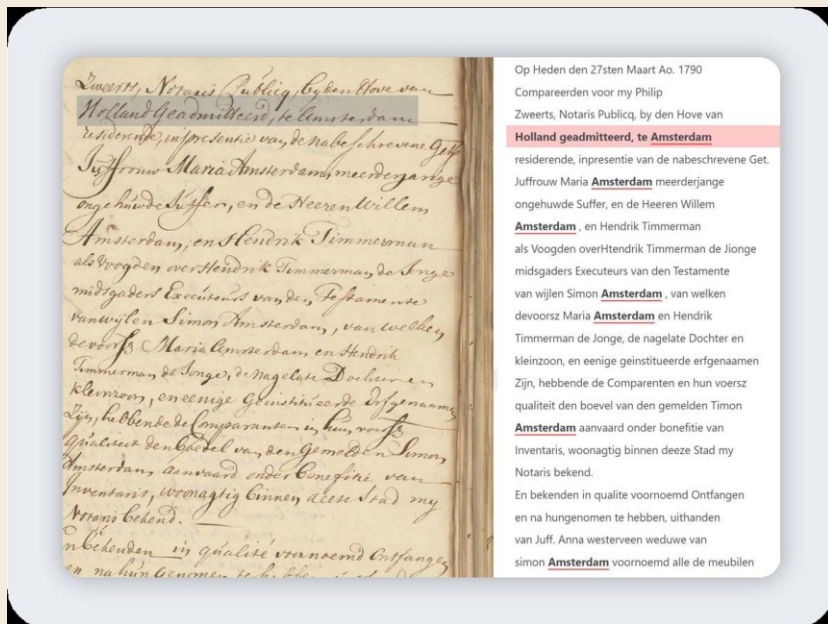 Zweerts, Notaris Publicq, by den Hove van
Holland Geadmitteerd, te Amsterdam
residerende, inpresentie van de nabeschrevene Get
Juffrouw Maria Amsterdam, meerderjange
ongehuwde Juffer, en de Heeren Willem
Amsterdam, en Hendrik Timmerman
als Voogden over Hendrik Timmerman, de Jonge
midsgaders Executeurs van den Testamente
van wylen Simon Amsterdam, van welken
devoorsz Maria Amsterdam en Hendrik
Timmerman de Jonge, de Nagelate Dochter en
kleinzoon, en eenige Geinstitueerde Erfgenaamen
Zijn, hebbende de Comparanten in hun voorsz
qualiteit den Boedel van den Gemelden Simon
Amsterdam aanvaard onder benefitie van
Inventaris, woonagtig binnen deese Stad my
Notaris bekend.
n bekenden in qualité voornoemd Ontfangen
en na hun Genomen te hebben
Op Heden den 27sten Maart Ao. 1790
Compareerden voor my Philip
Zweerts, Notaris Publicq, by den Hove van
Holland geadmitteerd, te Amsterdam
residerende, inpresentie van de nabeschrevene Get.
Juffrouw Maria Amsterdam meerderjange
ongehuwde Suffer, en de Heeren Willem
Amsterdam , en Hendrik Timmerman
als Voogden overHtendrik Timmerman de Jionge
midsgaders Executeurs van den Testamente
van wijlen Simon Amsterdam , van welken
devoorsz Maria Amsterdam en Hendrik
Timmerman de Jonge, de nagelate Dochter en
kleinzoon, en eenige geinstitueerde erfgenaamen
Zijn, hebbende de Comparenten en hun voersz
qualiteit den boevel van den gemelden Timon
Amsterdam aanvaard onder bonefitie van
Inventaris, woonagtig binnen deeze Stad my
Notaris bekend.
En bekenden in qualite voornoemd Ontfangen
en na hungenomen te hebben, uithanden
van Juff. Anna westerveen weduwe van
simon Amsterdam voornoemd alle de meubilen